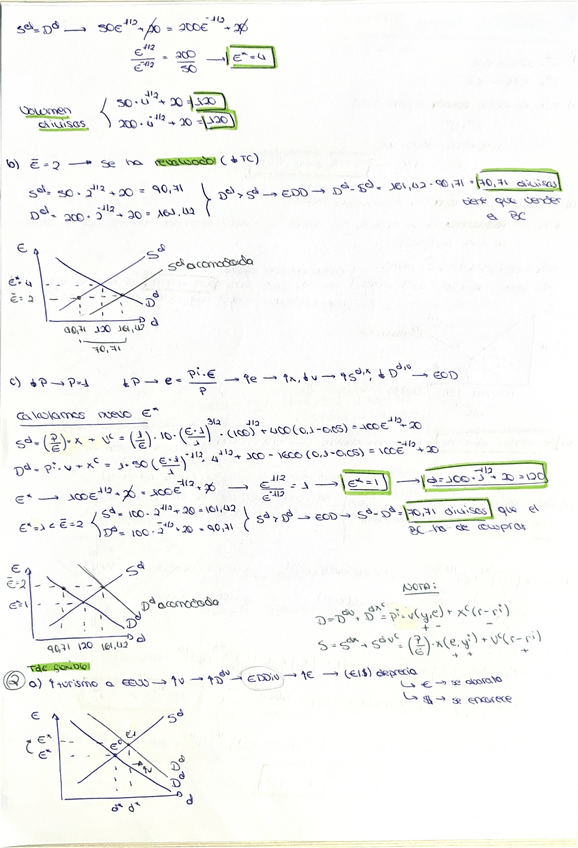 Sᵈ = Dᵈ → 50E^1/2 + 20 = 200E^-1/2 + 20
E^1/2 / E^-1/2 = 200/50 → E* = 4
Volumen divisas { 50·4^1/2 + 20 = 120
200·4^-1/2 + 20 = 120
b) Ē = 2 → se ha revaluado (↓TC)
Sᵈ = 50·2^1/2 + 20 = 90,71
Dᵈ = 200·2^-1/2 + 20 = 161,42 } Dᵈ > Sᵈ → EDD → Dᵈ - Sᵈ = 161,42 - 90,71 = 70,71 divisas
tiene que vender
el BC
E
Sᵈ
Sᵈ acomodada
E* = 4
Ē = 2
Dᵈ
90,71 120 161,42 d
70,71
c) ↓P → P=1 ↓P → e = Pⁱ·E / P → ↑e → ↑x, ↓v → ↑Sᵈ,ˣ, ↓Dᵈ,ᵛ → EOD
Calculamos nuevo E*
Sᵈ = (P/E)·x + Vᶜ = (1/E)·10·(E·1/1)^3/2·(100)^1/2 + 400(0,1-0,05) = 100E^1/2 + 20
Dᵈ = Pⁱ·v + xᶜ = 1·50(E·1/1)^-1/2·4^1/2 + 100 - 1600(0,1-0,05) = 100E^-1/2 + 20
E* → 100E^1/2 + 20 = 100E^-1/2 + 20 → E^1/2 / E^-1/2 = 1 → E* = 1 → d = 100·1^-1/2 + 20 = 120
E* = 1 < Ē = 2 { Sᵈ = 100·2^1/2 + 20 = 161,42
Dᵈ = 100·2^-1/2 + 20 = 90,71 } Sᵈ > Dᵈ → EOD → Sᵈ - Dᵈ = 70,71 divisas que el
BC ha de comprar
E
Sᵈ
Ē = 2
E = 1
Dᵈ acomodada
Dᵈ
90,71 120 161,42 d
NOTA:
D = Dᵈᵛ + Dᵈˣᶜ = Pⁱ·v(y,e) + xᶜ(r-rⁱ)
+ - -
S = Sᵈˣ + Sᵈᵛᶜ = (P/E)·x(e,yⁱ) + Vᶜ(r-rⁱ)
+ + +
Tdc flexible
② a) ↑turismo a EEUU → ↑v → ↑Dᵈᵛ → EDDiv → ↑E → (€/$) deprecia
↳ € → se abarata
↳ $ → se encarece
E
Sᵈ
E*
E*
E⁰
E1
↑v
Dᵈ
Dᵈ
d* d* d